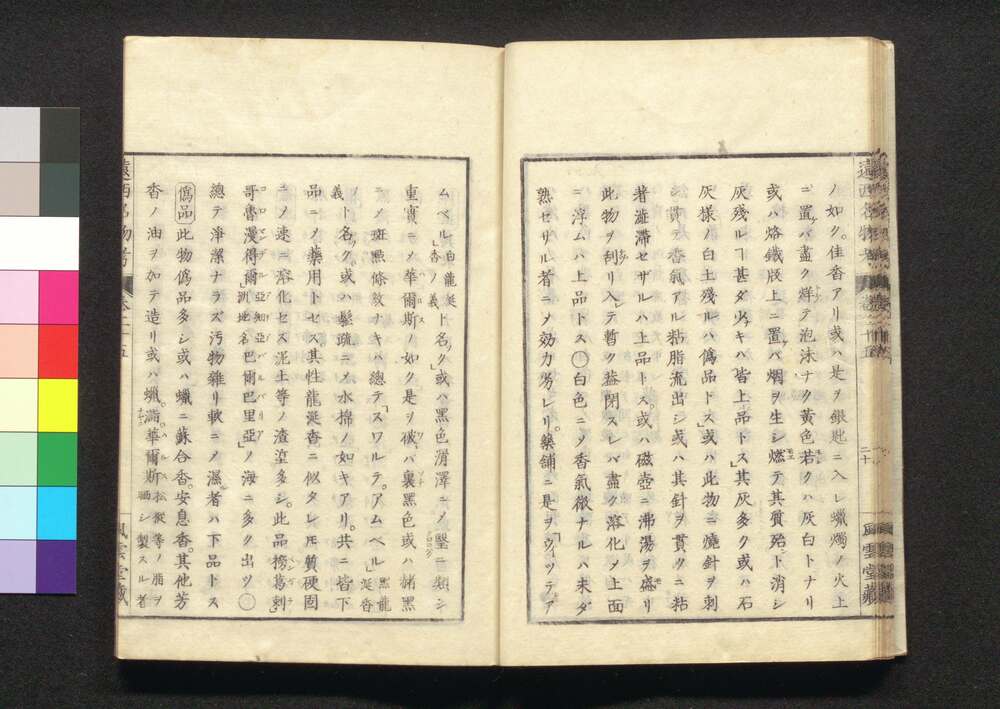 ノ如ク。佳香アリ或ハ是ヲ銀匙ニ入レ蠟燭ノ火上
ニ置バ盡ク烊テ泡沫ナク黃色若クハ灰白トナリ
或ハ烙鐵版上ニ置バ烟ヲ生シ燃テ其質殆ト消シ
灰殘ルヿ甚ダ少キハ皆上品トス」其灰多ク或ハ石
灰樣ノ白土殘ルハ僞品トス」或ハ此物ニ燒針ヲ刺
シ貫テ香氣アル粘脂流出シ或ハ其針ヲ貫クニ粘
著澁滯セザルハ上品トス或ハ磁壺ニ沸湯ヲ盛リ
此物ヲ刮リ入レテ暫ク葢閉スレバ盡ク溶化メ上面
ニ浮ムハ上品トス○白色ニメ香氣微ナルハ未ダ
熟セザル者ニメ効力劣レリ。藥舖ニ是ヲ「ウィッテア
遠西名物考
二十
風雲堂藏
ムベル」白龍涎香ノ義ト名ク」或ハ黑色滑澤ニメ璧ニ類シ
重實ニメ華爾斯ノ如ク是ヲ破バ裏黑色或ハ諸黑
ニメ斑點條紋ナキハ總テ「スワルテ。アムベル」黑龍涎香ノ
義ト名ク或ハ髮疏ニメ水棉ノ如キアリ。共ニ皆下
品ニメ藥用トセス其性龍涎香ニ似タレ𪜈質硬固
ニメ速ニ溶化セス泥土等ノ渣滓多シ。此品榜葛剌
哥魯漫得爾亞細亞洲地名巴爾巴里亞」ノ海ニ多ク出ツ○
總テ淨潔ナラズ汚物雜リ軟ニメ濕者ハ下品トス
僞品此物僞品多シ或ハ蠟ニ蘇合香。安息香。其他芳
香ノ油ヲ加テ造リ或ハ蠟。瀝青。華爾斯松樅等ノ脂ヲ晒シ製スル者
遠西名物考
卷二十五
風雲堂藏